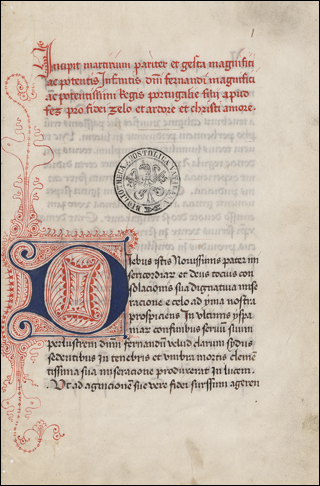 1
Incipit martirium pariter et gesta magnifici
ac potentis Infantis dnī fernandi magnifici
ac potentissimi Regis portugalie filii apud
fez pro fidei zelo et ardore et christi amore.
BIBLIOTHECA APOSTOLICA VATICANA
Diebus istis Novissimis pater mi
sericordiar et deus tocius con
solacionis sua dignatiua mise
racione e celo ad yma nostra
prospiciens In vltimis yspa
niar confinibus seruū suum
perlustrem dnm̄ fernandū velud clarum sydus
sedentibus In tenebris et vmbra mortis clemē
tissima sua miseracione produxerat In lucem.
Vt ad agnicionē sue vere fidei sursum ageren